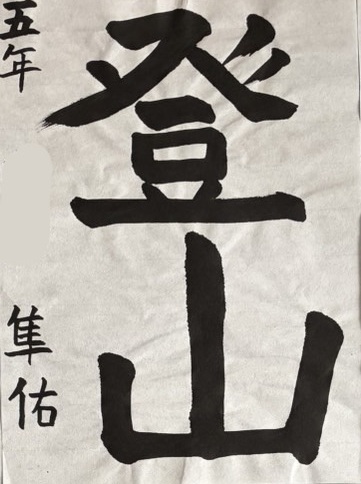 登山
五年
隼佑